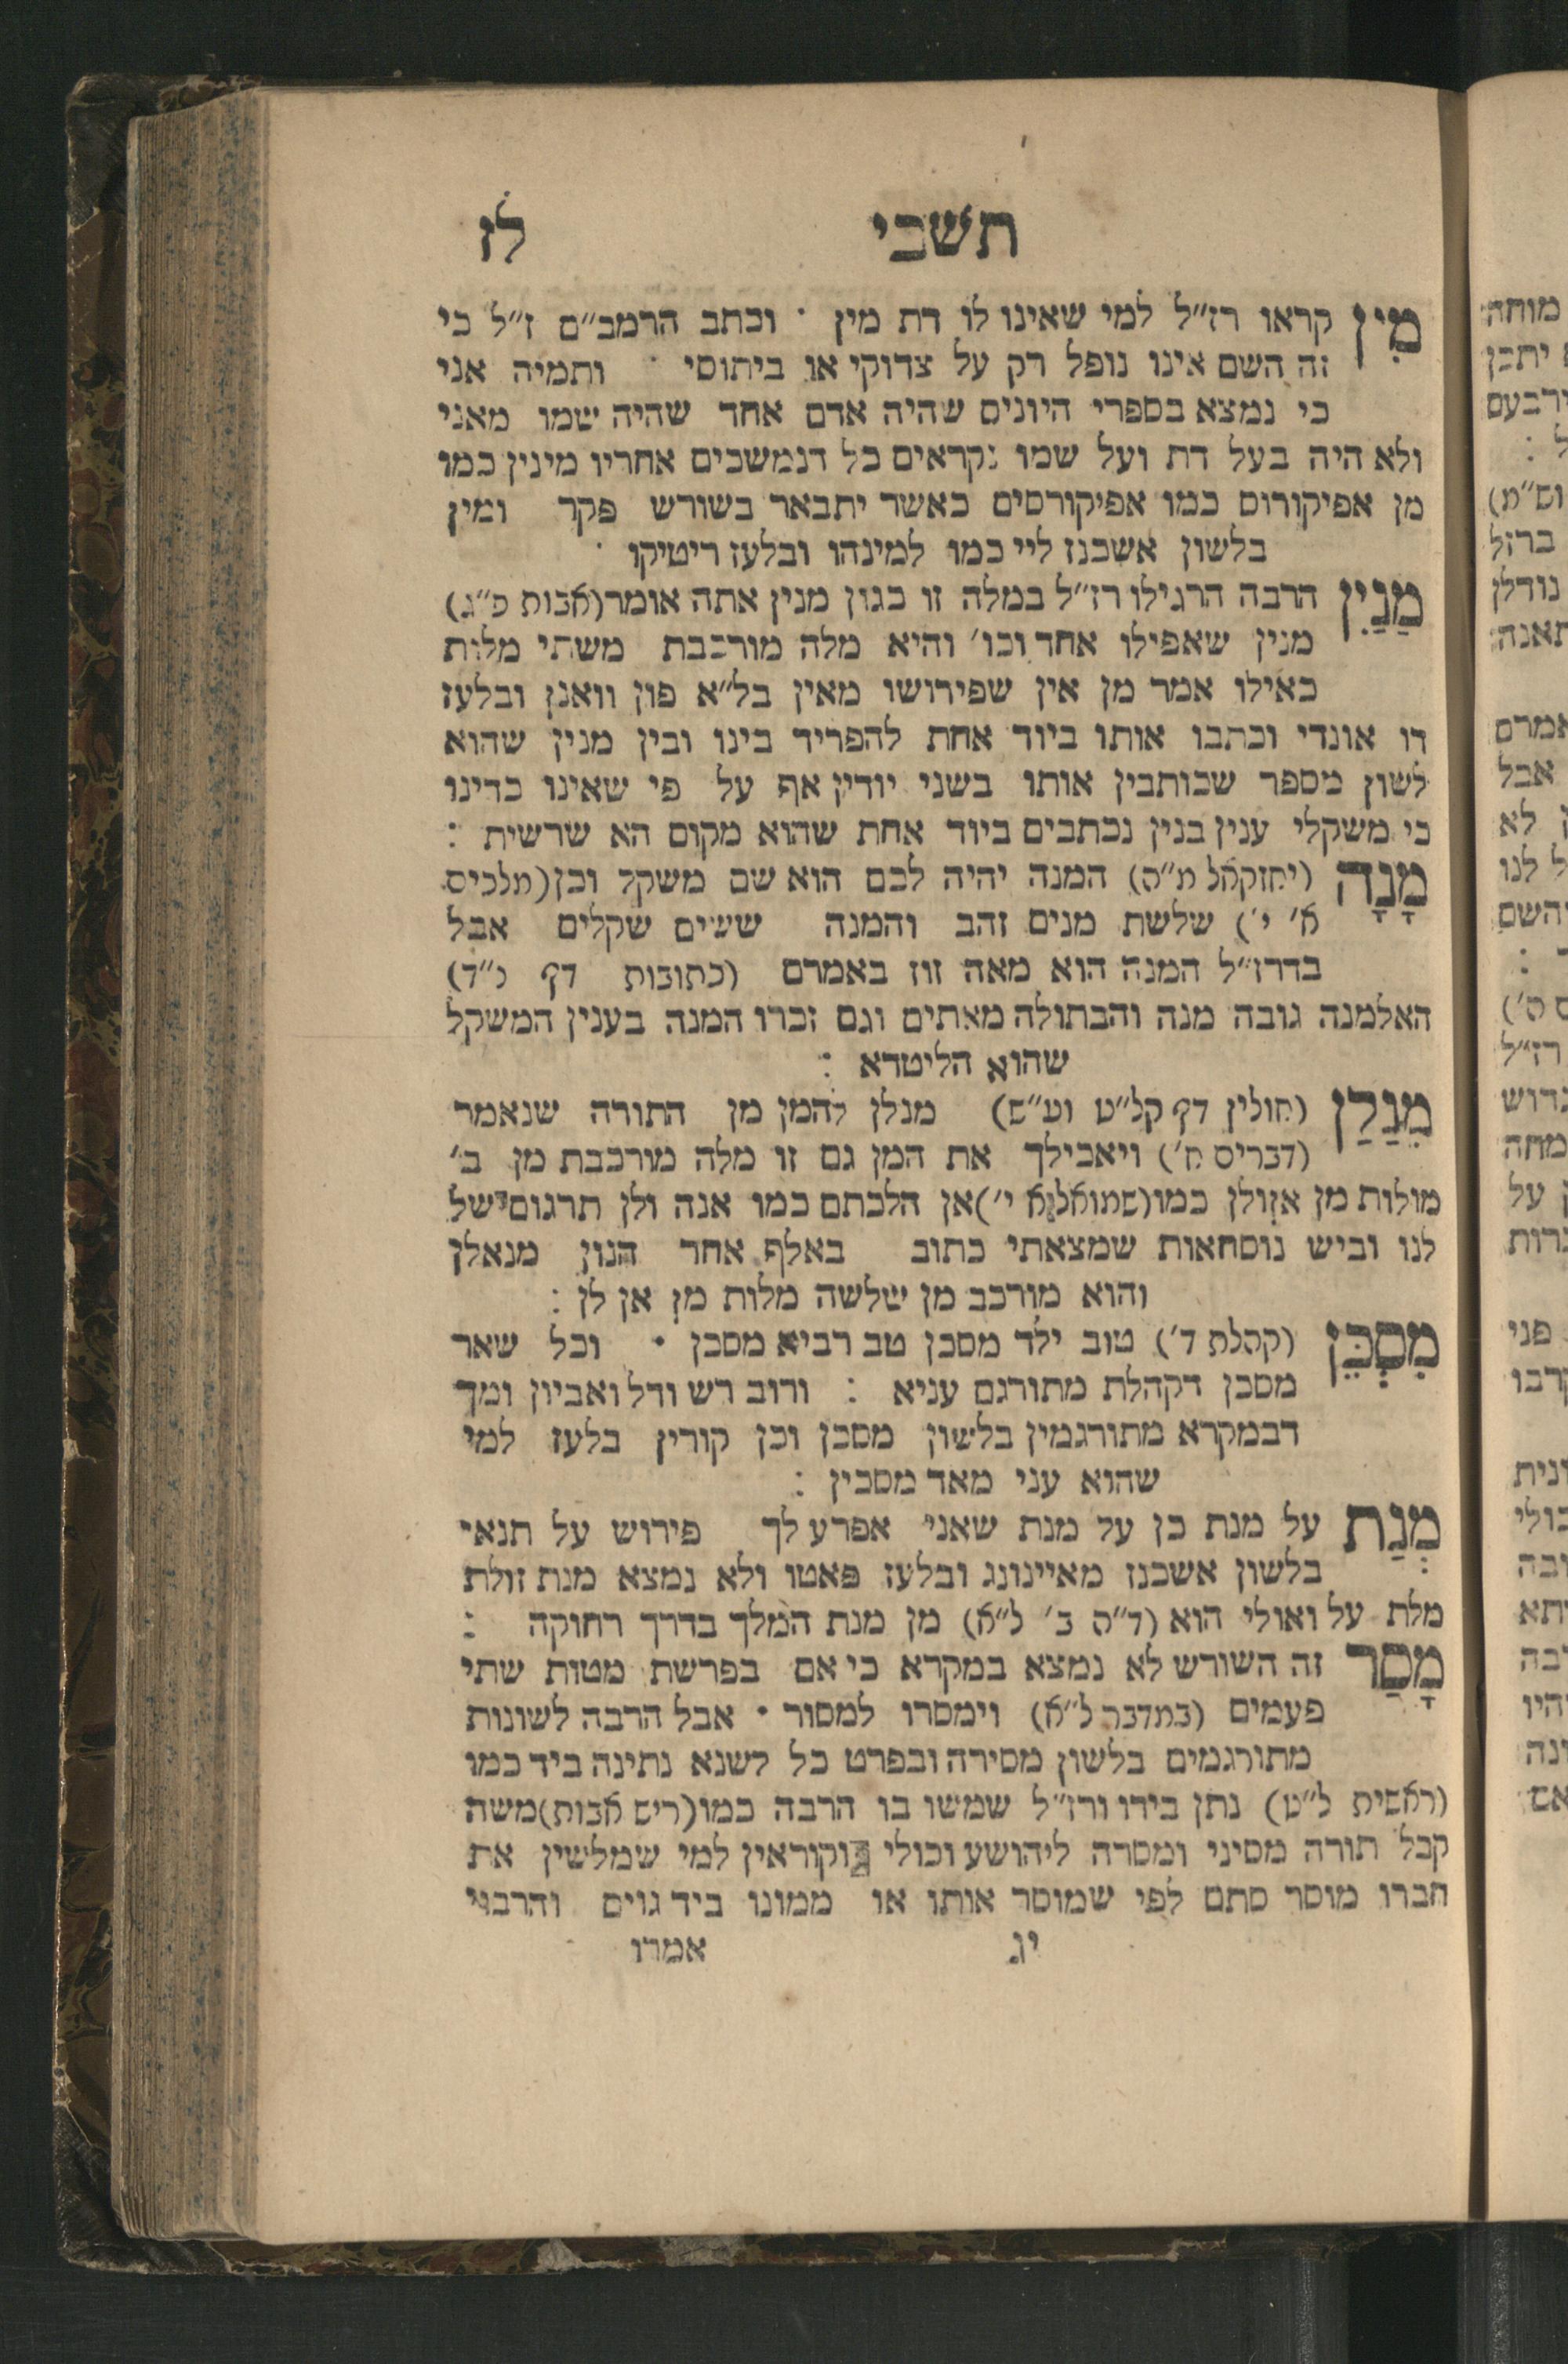 תשבי לז
מִין קראו רז״ל למי שאינו לו דת מין · וכתב הרמב״ם ז״ל כי
זה השם אינו נופל רק על צדוקי או ביתוסי · ותמיה אני
כי נמצא בספרי היונים שהיה אדם אחד שהיה שמו מאני
ולא היה בעל דת ועל שמו נקראים כל הנמשכים אחריו מינין כמו
מן אפיקורוס כמו אפיקורסים כאשר יתבאר בשורש פקר ומין
בלשון אשכנז ליי כמו למינהו ובלעז ריטיקו ·
מַנַיִן הרבה הרגילו רז״ל במלה זו כגון מנין אתה אומר (אבות פ״ג)
מנין שאפילו אחד וכו׳ והיא מלה מורכבת משתי מלות
כאילו אמר מן אין שפירושו מאין בל״א פון וואנן ובלעז
דו אונדי וכתבו אותו ביוד אחת להפריד בינו ובין מנין שהוא
לשון מספר שכותבין אותו בשני יודין אף על פי שאינו כדינו
כי משקלי ענין בנין נכתבים ביוד אחת שהוא מקום הא שרשית :
מָנָה (יחזקאל מ״ה) המנה יהיה לכם הוא שם משקל וכן (מלכים
א׳ י׳) שלשת מנים זהב והמנה ששים שקלים אבל
בדרז״ל המנה הוא מאה זוז באמרם (כתובות דף כ״ד)
האלמנה גובה מנה והבתולה מאתים וגם זכרו המנה בענין המשקל
שהוא הליטרא :
מִנַלַן (חולין דף קל״ט וע״ש) מנלן להמן מן התורה שנאמר
(דברים ח׳) ויאכילך את המן גם זו מלה מורכבת מן ב׳
מולות מן אזולן כמו (שמואל א י׳) אן הלכתם כמו אנה ולן תרגום של
לנו וביש נוסחאות שמצאתי כתוב באלף אחר הנון מנאלן
והוא מורכב מן שלשה מלות מן אן לן :
מִסְכֵּן (קהלת ד׳) טוב ילד מסכן טב רביא מסכן · וכל שאר
מסכן דקהלת מתורגם עניא : ורוב רש ודל ואביון ומך
דבמקרא מתורגמין בלשון מסכן וכן קורין בלעז למי
שהוא עני מאד מסכין :
מְנַת על מנת כן על מנת שאני אפרע לך פירוש על תנאי
בלשון אשכנז מאיינונג ובלעז פאטו ולא נמצא מנת זולת
מלת על ואולי הוא (ד״ה ב׳ ל״א) מן מנת המלך בדרך רחוקה :
מָסַר זה השורש לא נמצא במקרא כי אם בפרשת מטות שתי
פעמים (במדבר ל״א) וימסרו למסור · אבל הרבה לשונות
מתורגמים בלשון מסירה ובפרט כל לשנא נתינה ביד כמו
(ראשית ל״ט) נתן בידו ורז״ל שמשו בו הרבה כמו (ריש אבות) משה
קבל תורה מסיני ומסרה ליהושע וכולי וקוראין למי שמלשין את
חברו מוסר סתם לפי שמוסר אותו או ממונו ביד גוים והרבני
יג אמרו
מוחה
יתכן
ירבעם
וש״מ)
ברזל
נודלן
תאנה
אמרם
אבל
לא
לנו
והשם
רז״ל
מחה
על
פני